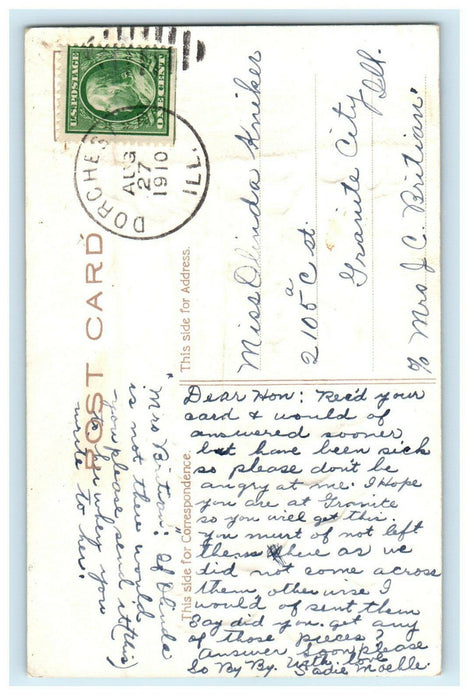 U.S. POSTAGE
ONE CENT
DORCHES
AUG
27
1910
ILL.
POST CARD
This side for Address.
Miss Olinda Kniker
2105a C st.
Granite City
Ill.
c/o Mrs J. C. Britian,
This side for Correspondence.
Dear Hon: Rec'd your
card & would of
answered sooner
but have been sick
so please don't be
angry at me. I Hope
you are at Granite
so you will get this.
you must of not left
them there as we
did not come across
them, otherwise I
would of sent them
Say did you get any
of those pieces?
answer soon please
So By By. With love
Sadie Moelle.
"Mrs Britian": If Olinda
is not there would
you please send it (this)
to her when you
write to her.